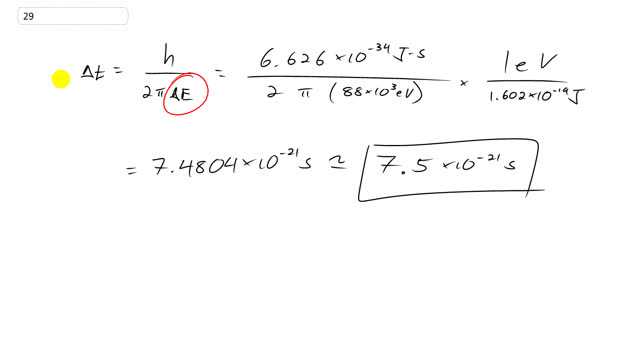 29
Δt = h / 2π ΔE = 6.626 × 10^-34 J·s / 2 π (88×10^3 eV) × 1 eV / 1.602×10^-19 J
= 7.4804 × 10^-21 s ≃ 7.5 × 10^-21 s